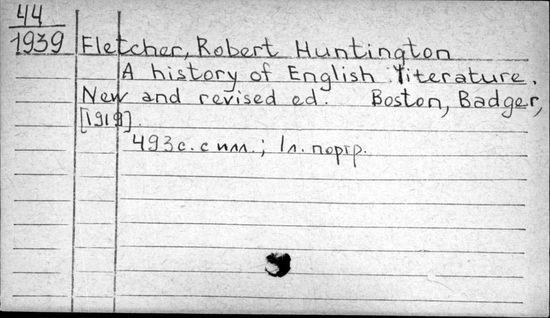 44
1939
Fletcher, Robert Huntington
A history of English literature.
New and revised ed. Boston, Badger,
[1919].
493 с. с илл.; 1 л. портр.